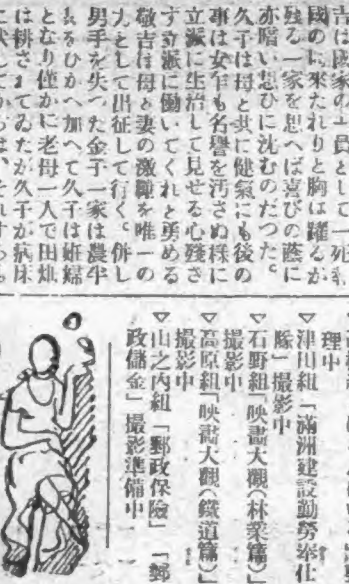 吉は國家の一員として一死報
國の時來たれりと胸は躍るが
殘る一家を思へば喜びの蔭に
亦暗い思ひに沈むのだつた。
久子は母と共に健氣にも後の
事は女乍も名譽を汚さぬ樣に
立派に生活して見せる心殘さ
ず立派に働いてくれと勇める
敬吉は母と妻の激勵を唯一の
力として出征して行く。併し
男手を失つた金子一家は農半
ともなり僅かに老母一人で田畑
は耕されてゐたが久子が病床
理中
▽津田組「滿洲建設勤勞奉仕
隊」撮影中
▽石野組「映畫大觀(林業篇)」
撮影中
▽高原組「映畫大觀(鐵道篇)」
撮影中
▽山之内組「郵政保險」「郵
政儲金」撮影準備中